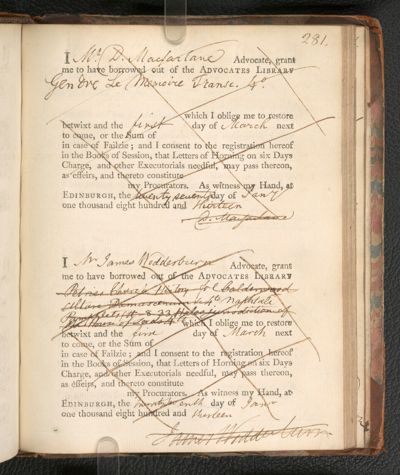 281.
I Mr. D. Macfarlane Advocate, grant
me to have borrowed out of the ADVOCATES LIBRARY
Le Memoire 4o.
which I oblige me to restore
betwixt and the first day of March next
to come, or the Sum of
in case of Failzie; and I consent to the registration hereof
in the Books of Session, that Letters of Horning on six Days
Charge, and other Executorials needful, may pass thereon,
as effeirs, and thereto constitute
my Procurators. As witness my Hand, at
EDINBURGH, the twenty seventh day of Jany
one thousand eight hundred and thirteen
D. Macfarlane
I Mr James Wedderburn Advocate, grant
me to have borrowed out of the ADVOCATES LIBRARY
Church History Calderwood
Altare Damascenum 4to
Pamphlets jurisdiction of
the House of Lords which I oblige me to restore
betwixt and the first day of March next
to come, or the Sum of
in case of Failzie; and I consent to the registration hereof
in the Books of Session, that Letters of Horning on six Days
Charge, and other Executorials needful, may pass thereon,
as effeirs, and thereto constitute
my Procurators. As witness my Hand, at
EDINBURGH, the day of Jany
one thousand eight hundred and thirteen
James Wedderburn